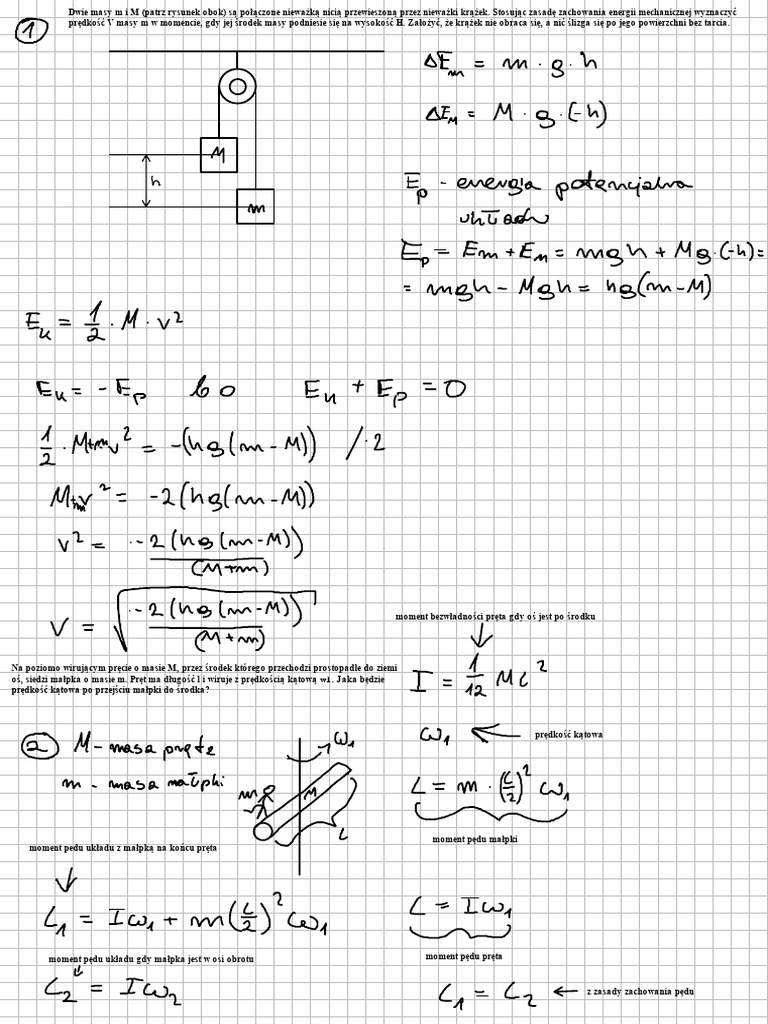 Dwie masy m i M (patrz rysunek obok) są połączone nieważką nicią przewieszoną przez nieważki krążek. Stosując zasadę zachowania energii mechanicznej wyznaczyć
prędkość V masy m w momencie, gdy jej środek masy podniesie się na wysokość H. Założyć, że krążek nie obraca się, a nić ślizga się po jego powierzchni bez tarcia.
1
ΔE_m = m · g · h
ΔE_M = M · g · (-h)
M
h
m
E_p - energia potencjalna
układu
E_p = E_m + E_M = mgh + Mg·(-h) =
= mgh - Mgh = hg(m-M)
E_k = 1/2 · M · v²
E_k = - E_p bo E_k + E_p = 0
1/2 · M+m v² = -(hg(m-M)) /·2
M+m v² = -2(hg(m-M))
v² = -2(hg(m-M)) / (M+m)
V = √(-2(hg(m-M)) / (M+m))
moment bezwładności pręta gdy oś jest po środku
I = 1/12 ML²
Na poziomo wirującym pręcie o masie M, przez środek którego przechodzi prostopadle do ziemi
oś, siedzi małpka o masie m. Pręt ma długość l i wiruje z prędkością kątową w1. Jaka będzie
prędkość kątowa po przejściu małpki do środka?
ω₁ ← prędkość kątowa
2 M - masa pręta
m - masa małpki
ω₁
m
M
L
L = m · (L/2)² ω₁
moment pędu małpki
moment pędu układu z małpką na końcu pręta
L₁ = Iω₁ + m(L/2)² ω₁
L = Iω₁
moment pędu pręta
moment pędu układu gdy małpka jest w osi obrotu
L₂ = Iω₂
L₁ = L₂ ← z zasady zachowania pędu